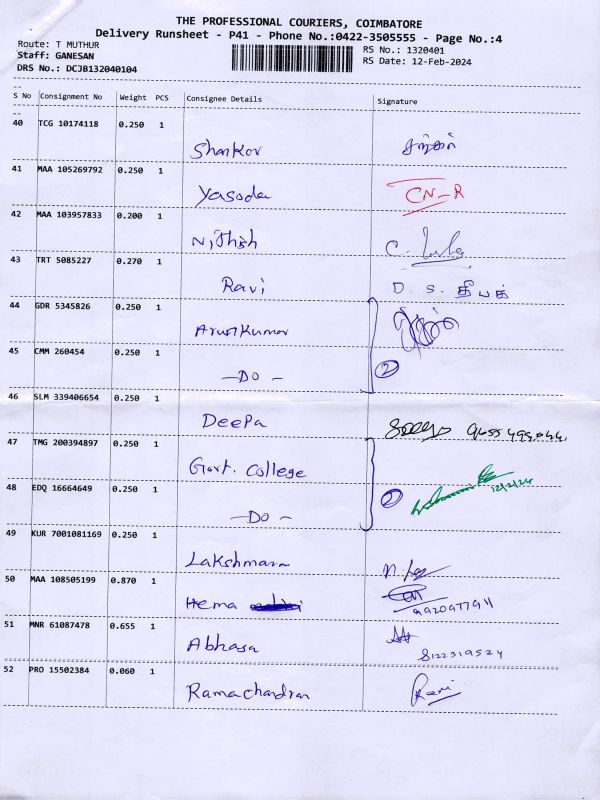 THE PROFESSIONAL COURIERS, COIMBATORE
Delivery Runsheet - P41 - Phone No.:0422-3505555 - Page No.:4
Route: T MUTHUR RS No.: 1320401
Staff: GANESAN RS Date: 12-Feb-2024
DRS No.: DCJB132040104
S No Consignment No Weight PCS Consignee Details Signature
40 TCG 10174118 0.250 1
Shankar சங்கர்
41 MAA 105269792 0.250 1
Yasoda CN-R
42 MAA 103957833 0.200 1
Nithish C.
43 TRT 5085227 0.270 1
Ravi D. S. தீபக்
44 GDR 5345826 0.250 1
Arunkumar
45 CMM 260454 0.250 1
-DO- 2
46 SLM 339406654 0.250 1
Deepa
47 TMG 200394897 0.250 1
Govt. College
48 EDQ 16664649 0.250 1
12/2/24
-DO-
49 KUR 7001081169 0.250 1
Lakshmana
50 MAA 108505199 0.870 1
Hema 9920977911
51 MNR 61087478 0.655 1
Abhasa 8122319524
52 PRO 15502384 0.060 1
Ramachandran Ravi